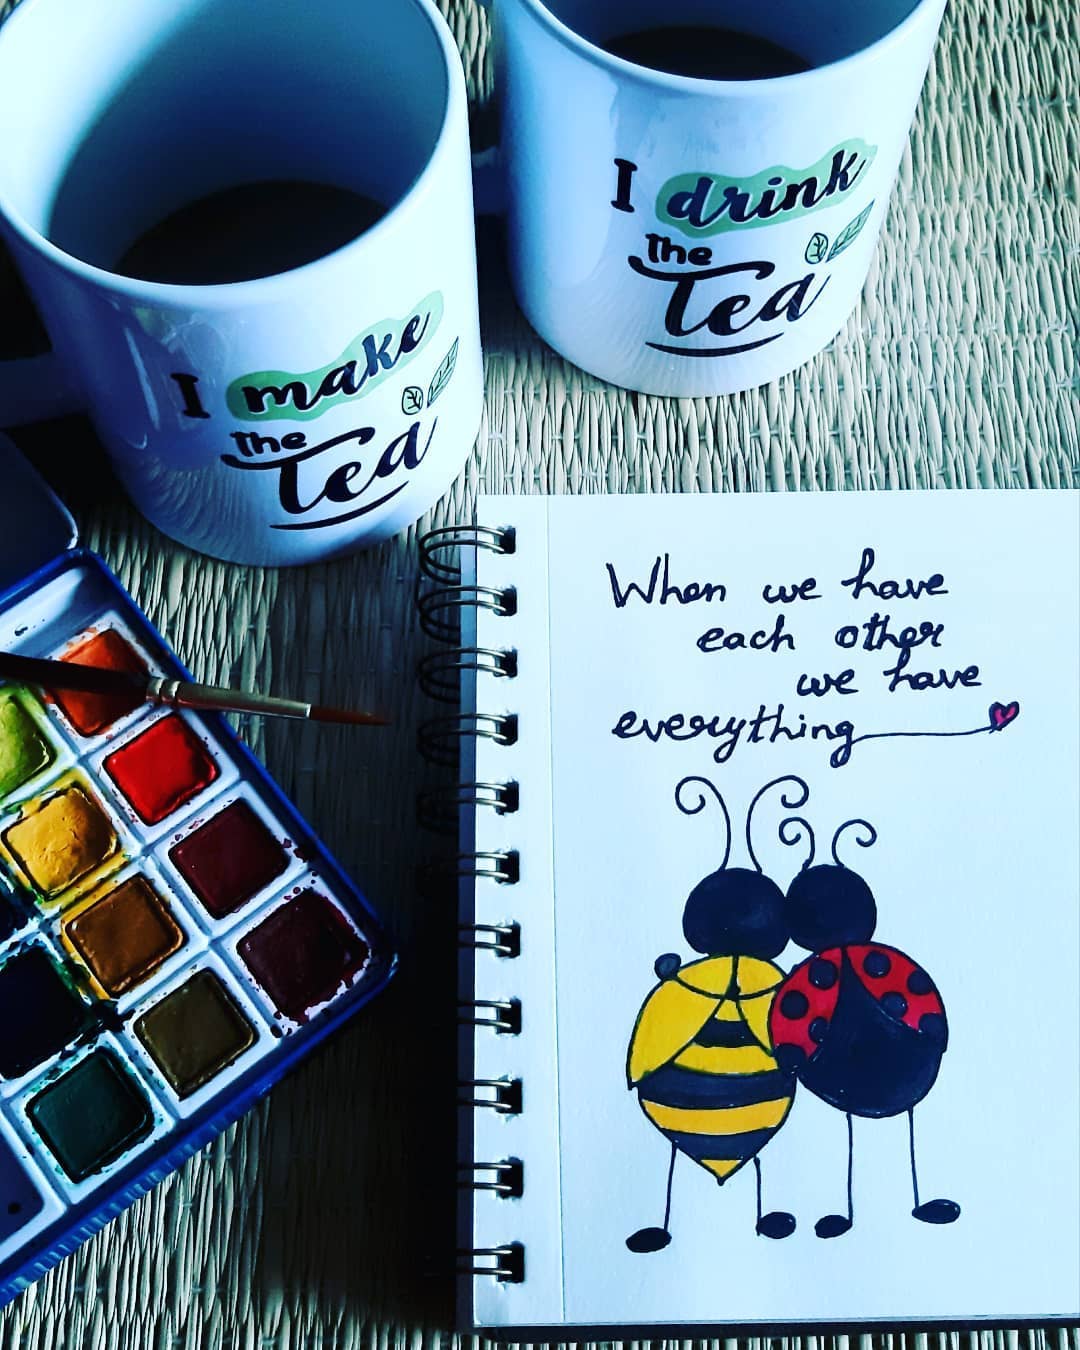 I make
the
Tea
I drink
the
Tea
When we have
each other
we have
everything